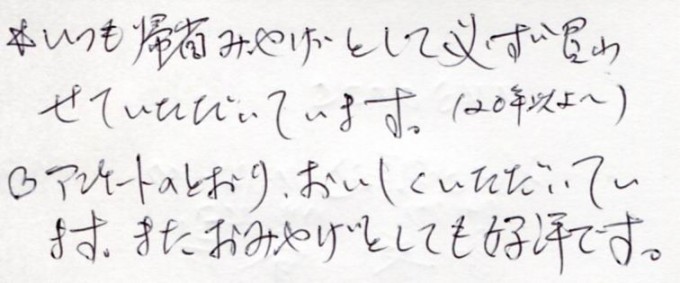 ☆いつも帰省みやげとして必ず買わ
せていただいています。(20年以上〜)
◎アンケートのとおり、おいしくいただいてい
ます。また、おみやげとしても好評です。